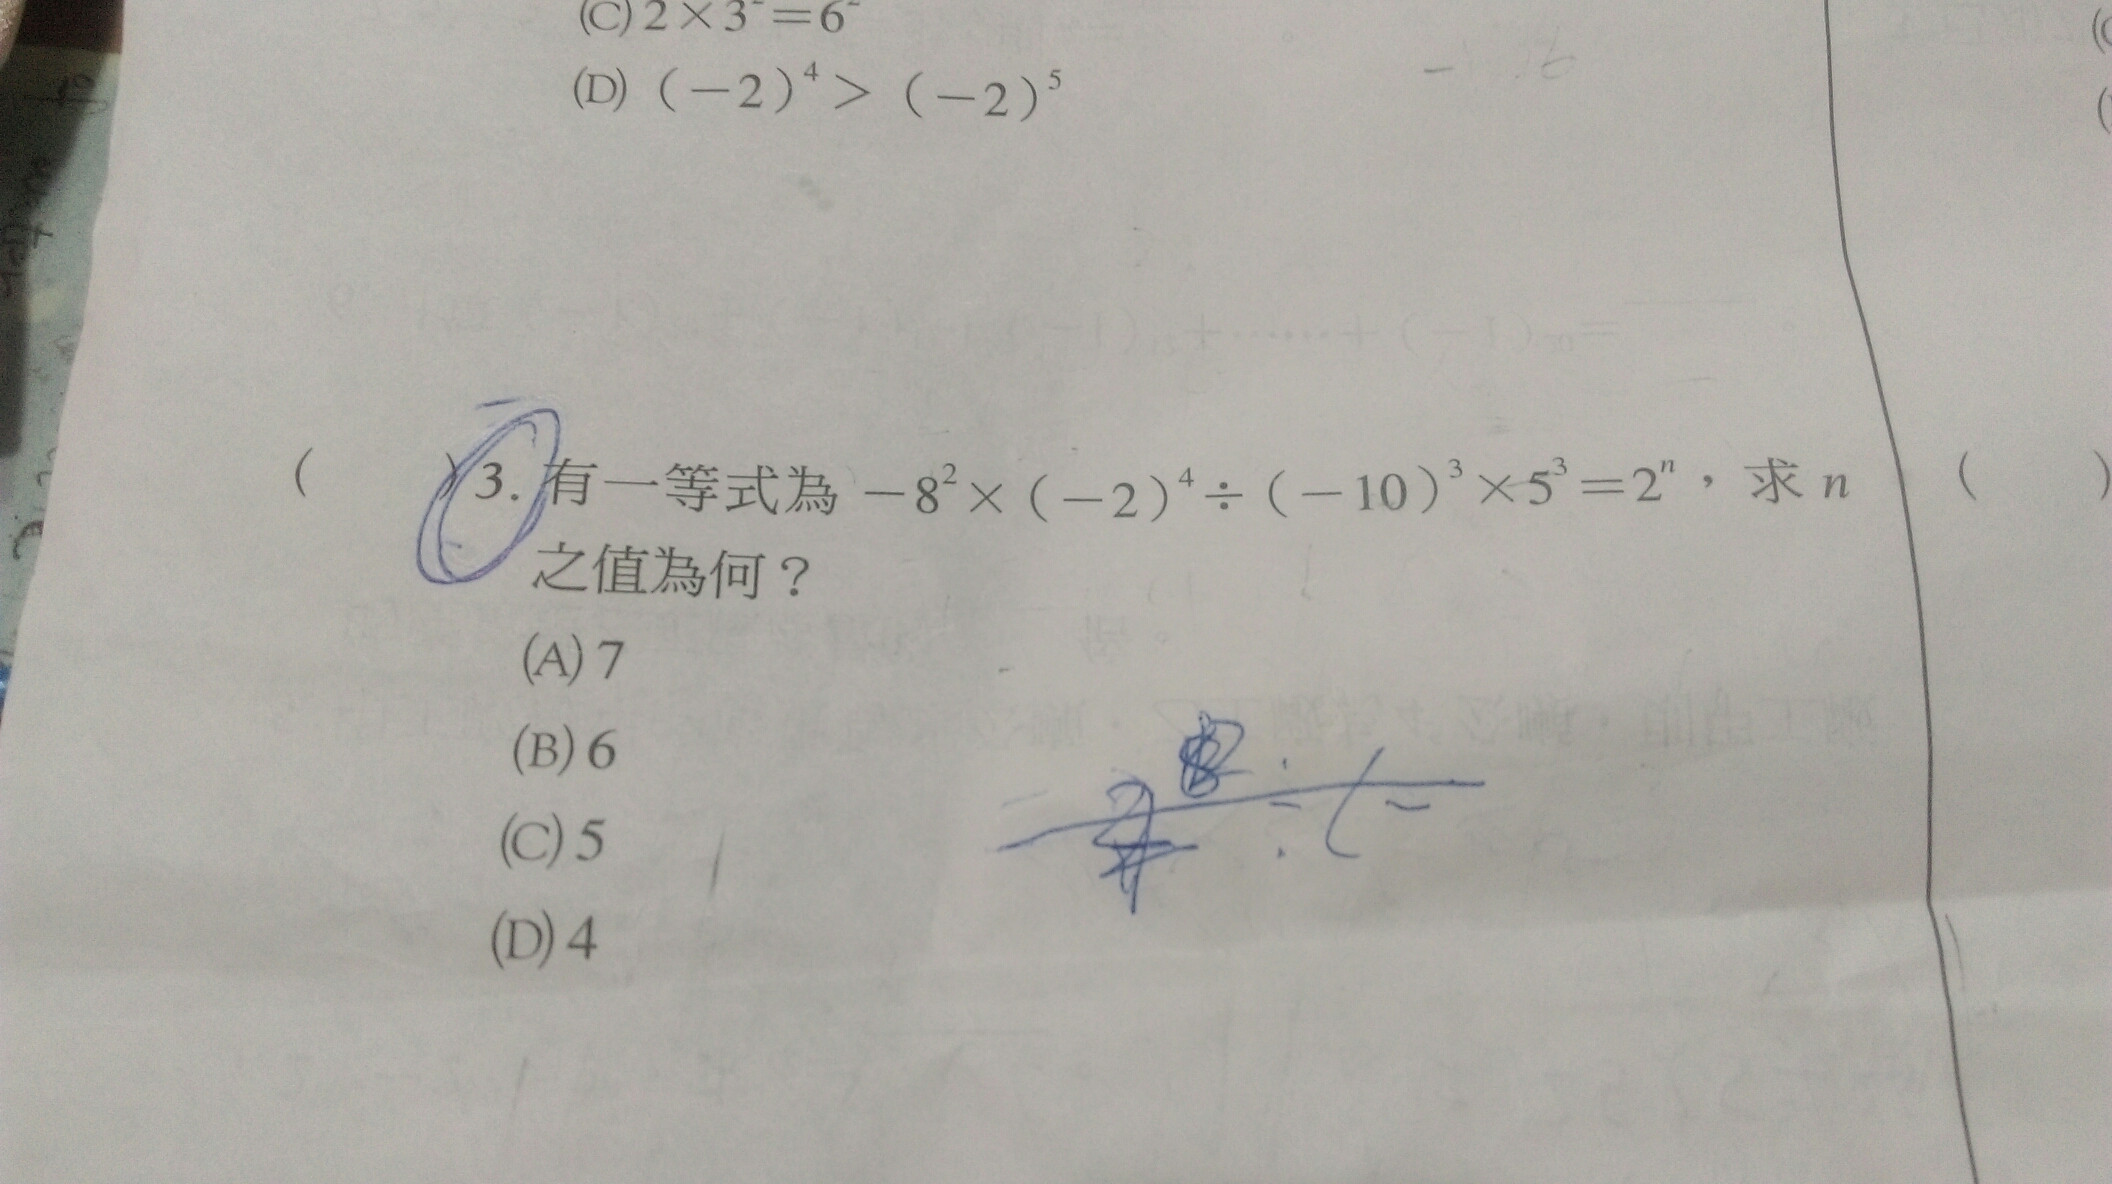 (C) 2×3²=6²
(D) (−2)⁴＞(−2)⁵
( )3. 有一等式為 −8²×(−2)⁴÷(−10)³×5³=2ⁿ，求 n
之值為何？
(A) 7
(B) 6
(C) 5
(D) 4